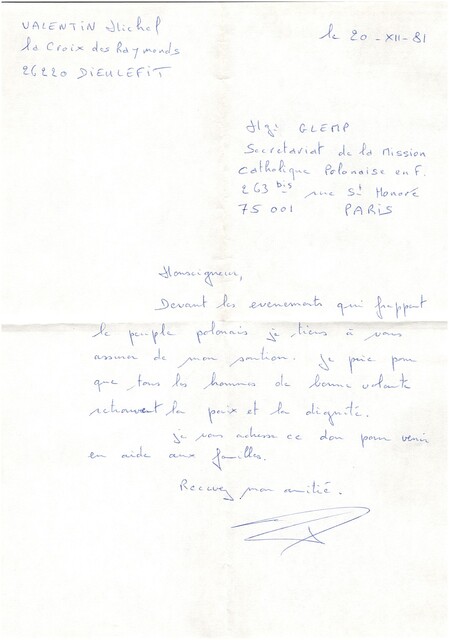 VALENTIN Michel
la Croix des Raymonds
26220 DIEULEFIT
le 20 - XII - 81
Mgr GLEMP
Secretariat de la Mission
Catholique Polonaise en F.
263 bis rue St Honoré
75001 PARIS
Monseigneur,
Devant les evenements qui frappent
le peuple polonais je tiens à vous
assurer de mon soutien. Je prie pour
que tous les hommes de bonne volonté
retrouvent la paix et la dignité.
je vous adresse ce don pour venir
en aide aux familles.
Recevez mon amitié.